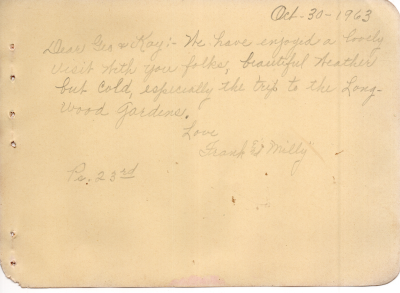 Oct-30-1963
Dear Geo & Kay:- We have enjoyed a lovely
visit with you folks, beautiful weather
but cold, especially the trip to the Long-
wood Gardens.
Love
Frank & Milly
Ps. 23rd